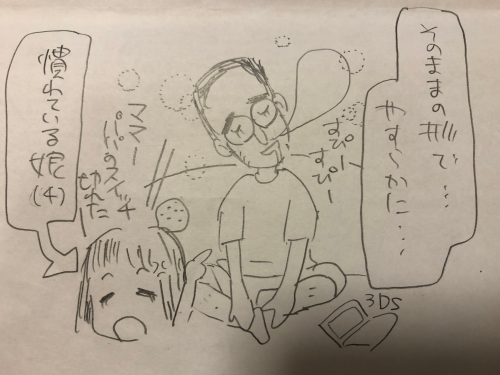 そのままの形で…
やす〜かに…
すぴー
すぴー
ママー
パパのスイッチ
切れたー
慣れている娘
(4)
3DS